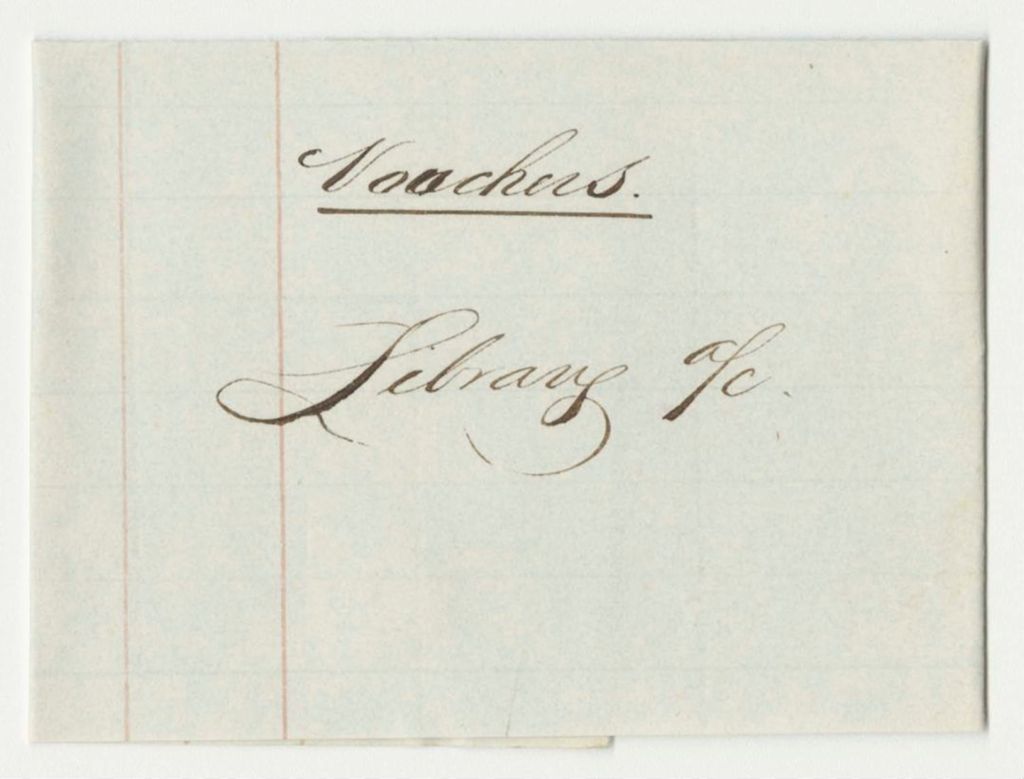 Vouchers.
Library a/c.